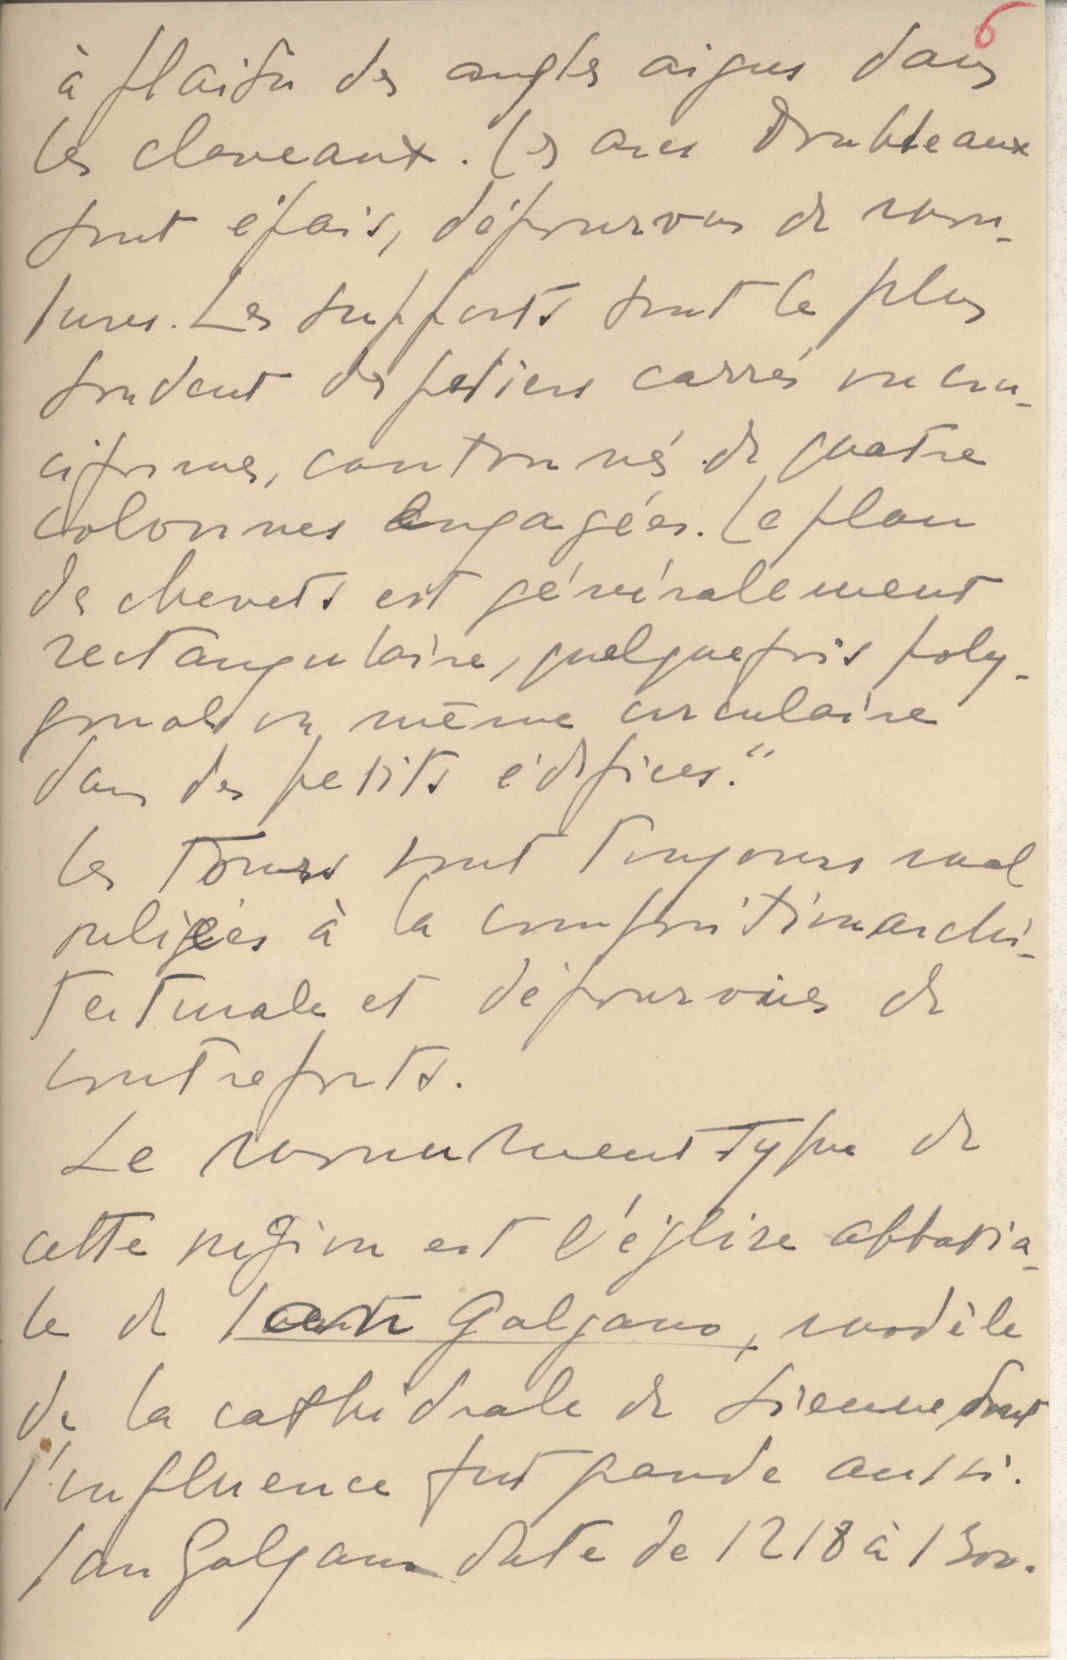 6
à plaisir des angles aigus dans
les claveaux. Les arcs doubleaux
sont épais, dépourvus de mou-
lures. Les supports sont le plus
souvent des petiers carrés ou cru-
ciformes, cantonnés de quatre
colonnes engagées. Le plan
des chevets est généralement
rectangulaire, quelquefois poly-
gonal ou même circulaire
dans des petits édifices."
Les Tours sont toujours mal
reliées à la composition archi-
tecturale et dépourvues de
contreforts.
Le monument type de
cette région est l'église abbatia-
le de San Galgano, modèle
de la cathédrale de Sienne dont
l'influence fut grande aussi.
San Galgano date de 1218 à 1300.